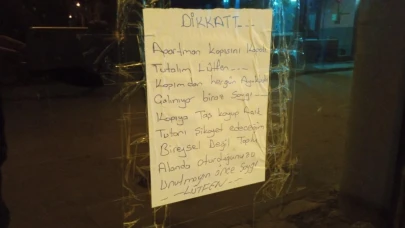 DİKKAT!...
Apartman Kapısını Kapalı
Tutalım LÜtfen
Kapımdan hergün Ayakkabı
Çalınıyor biraz Saygı
Kapıya Taş koyup Açık
Tutanı Şikayet edeceğim
Bireysel Değil Toplu
Alanda oturduğunuzu
Unutmayın Lütfen Saygı
LÜTFEN